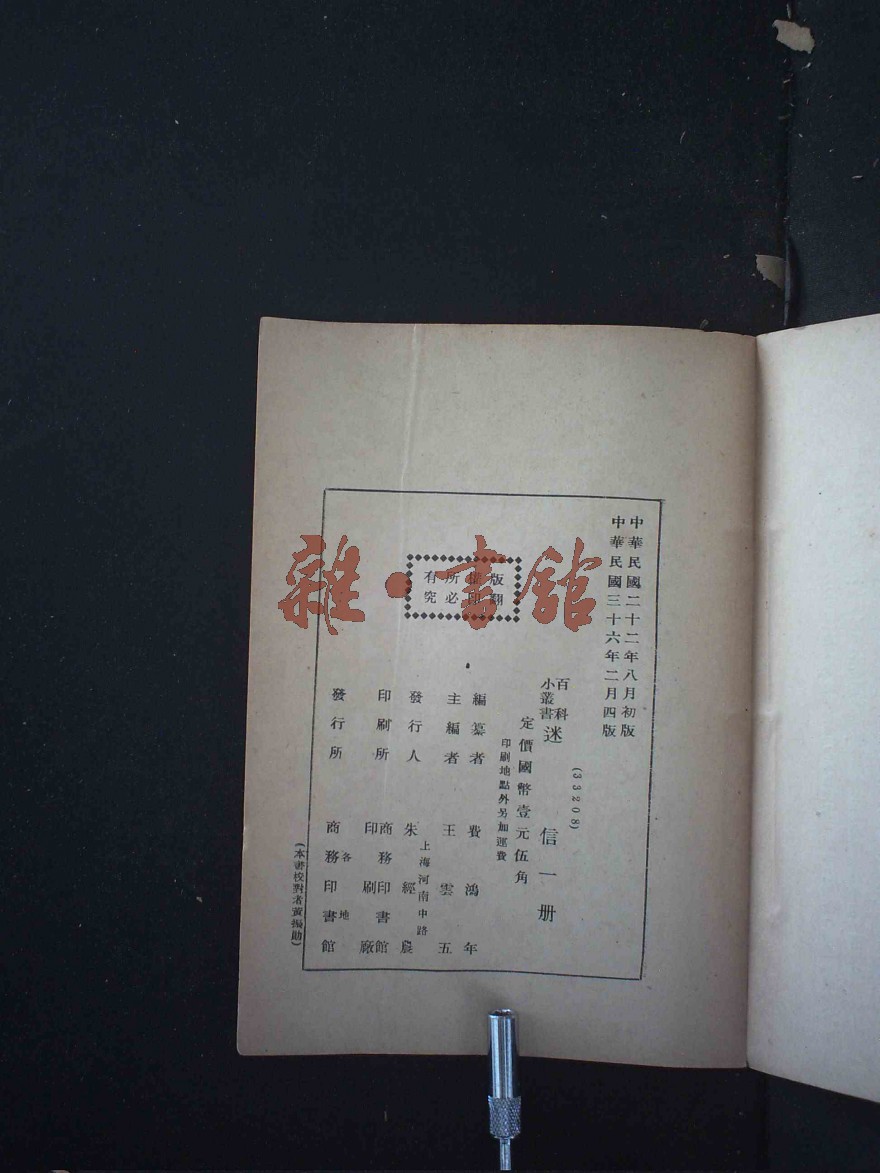 中華民國二十二年八月初版
中華民國三十六年二月四版
(33208)
百科
小叢書
迷信一册
定價國幣壹元伍角
印刷地點外另加運費
版權所有
翻印必究
編纂者 費鴻年
主編者 王雲五
上海河南中路
發行人 朱經農
印刷所 商務印書館
印刷廠
各地
發行所 商務印書館
(本書校對者黃振勛)
雜·書館